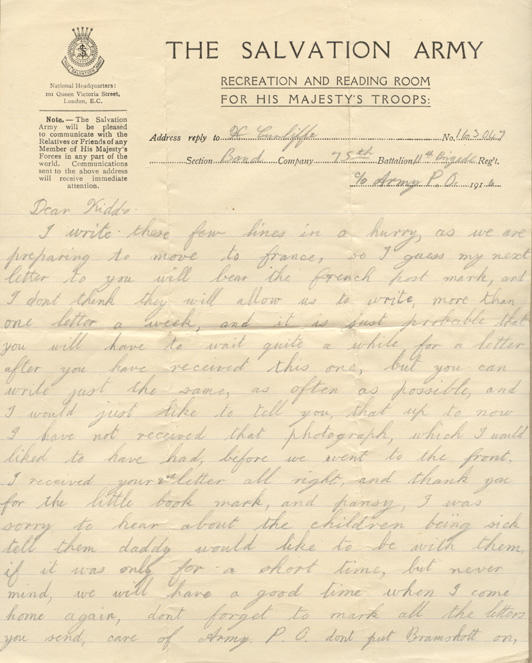 THE SALVATION ARMY
RECREATION AND READING ROOM
FOR HIS MAJESTY'S TROOPS:
National Headquarters:
101 Queen Victoria Street,
London, E.C.
Note.—The Salvation
Army will be pleased
to communicate with the
Relatives or Friends of any
Member of His Majesty's
Forces in any part of the
world. Communications
sent to the above address
will receive immediate
attention.
Address reply to H Cunliffe No. 163047
Section Band Company 75th Battalion 11th Brigade Reg't.
c/o Army P.O. 191
Dear Kiddo
I write these few lines in a hurry, as we are
preparing to move to france, so I guess my next
letter to you will bear the french post mark, and
I dont think they will allow us to write, more than
one letter a week, and it is just probable that
you will have to wait quite a while for a letter
after you have received this one, but you can
write just the same, as often as possible, and
I would just like to tell you, that up to now
I have not received that photograph, which I would
liked to have had, before we went to the front.
I received your letter all right, and thank you
for the little book mark, and pansy, I was
sorry to hear about the children being sick
tell them daddy would like to be with them,
if it was only for a short time, but never
mind, we will have a good time when I come
home again, dont forget to mark all the letters
you send, care of Army P.O. dont put Bramshott on,